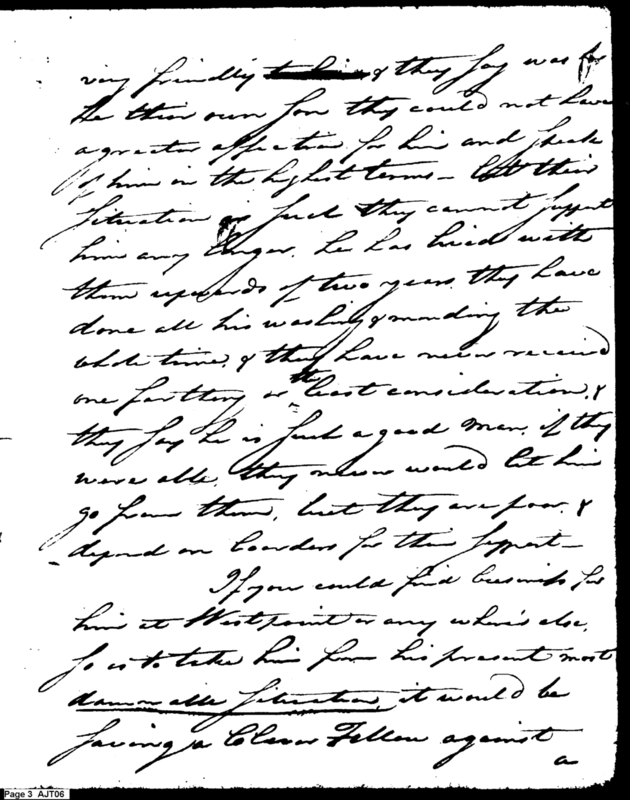 very friendly & they say was
he their own Son they could not have
a greater affection for him and speak
of him in the highest terms - but their
Situation is such they cannot support
him any longer, he has lived with
them upwards of two years, they have
done all his washing & mending the
whole time, & they have never received
one farthing or the least consideration, &
they say he is such a good man, if they
were able, they never would let him
go from them, but they are poor, &
depend on boarders for their support -
If you could find business for
him at Westpoint or any where's else,
so as to take him from his present most
damnable situation, it would be
saving a Clever Fellow against
a
Page 3 AJT06